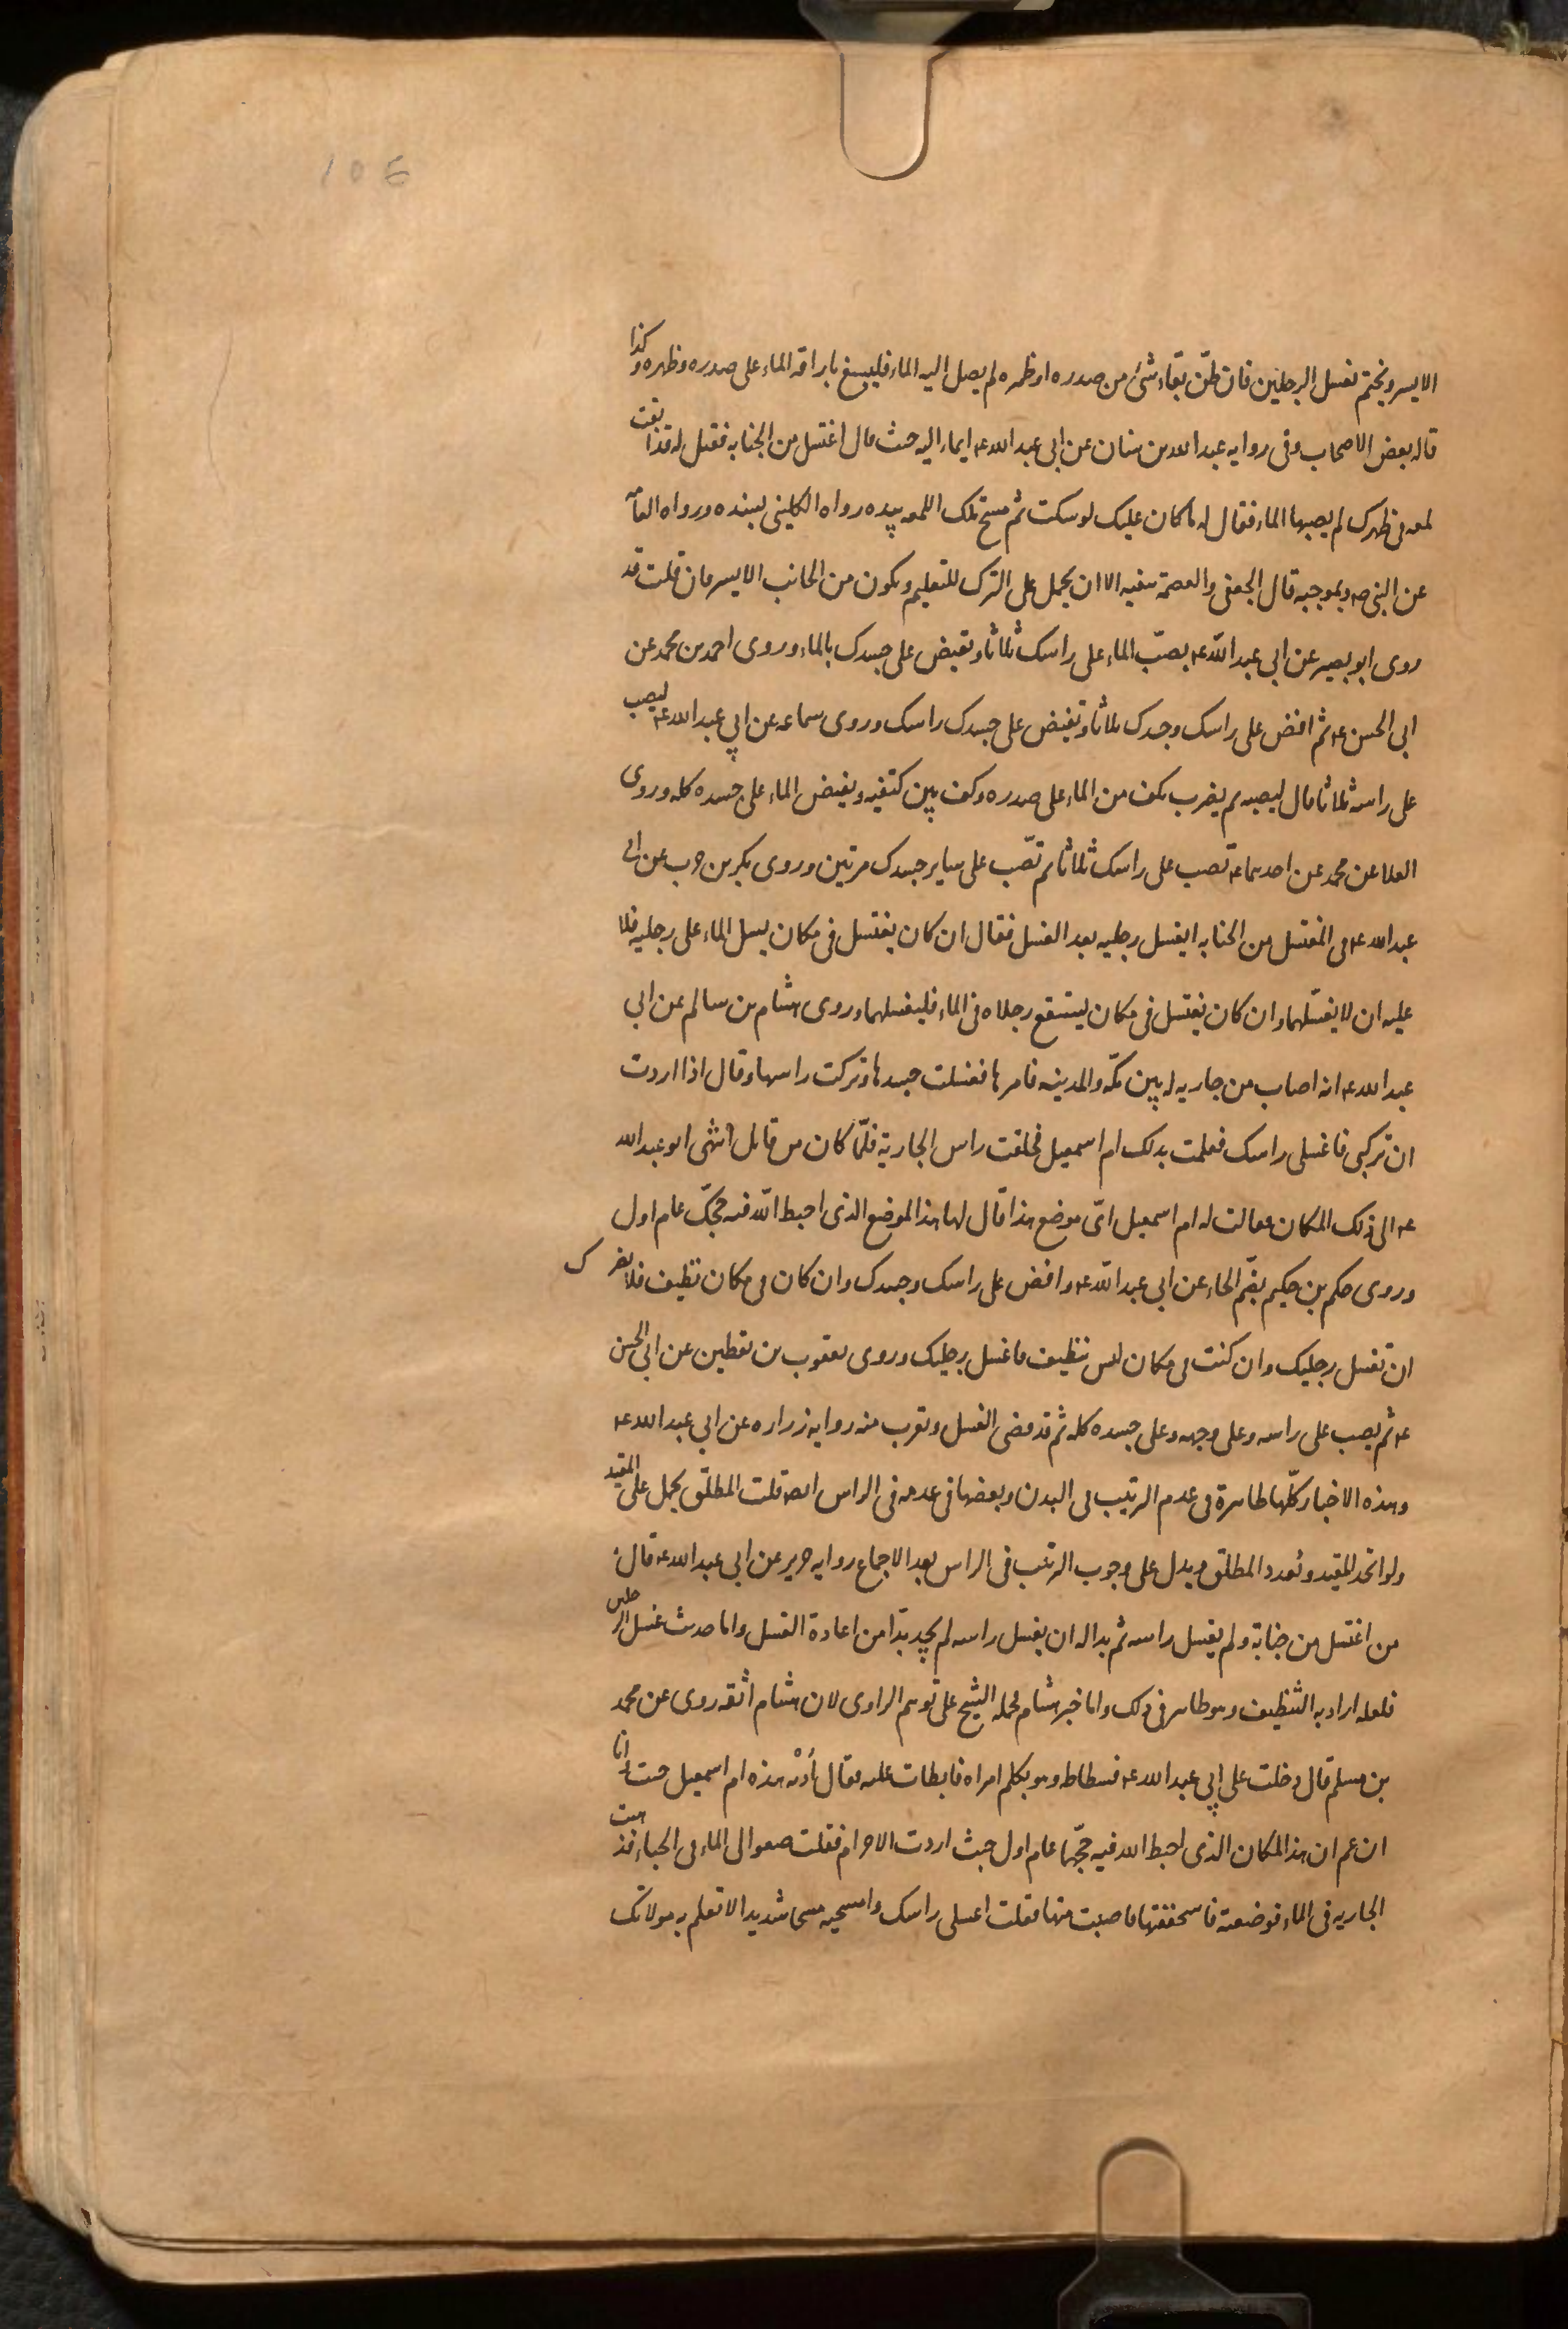 106
الايسر ويختم بغسل الرجلين فان ظن بقاء شئ من صدره او ظهره لم يصل اليه الماء فليسبغ باراقة الماء على صدره وظهره وكذا
قاله بعض الاصحاب وفى روايه عبد الله بن سنان عن ابى عبد الله ع ايماء اليه حيث قال اغتسل من الجنابه فقيل له قد ابقيت
لمعه فى ظهرك لم يصبها الماء فقال له ما كان عليك لو سكت ثم مسح تلك اللمعه بيده رواه الكلينى بسنده ورواه العامه
عن النبى ص وبموجبه قال الجعفى والعصمة تنفيه الا ان يحمل على الترك للتعليم ويكون من الجانب الايسر فان قلت قد
روى ابو بصير عن ابى عبد اللّه ع يصبّ الماء على راسك ثلاثا وتفيض على جسدك بالماء وروى احمد بن محمد عن
ابى الحسن ع ثم افض على راسك وجسدك ثلاثا وتفيض على جسدك راسك وروى سماعه عن ابى عبد الله ع ليصب
على راسه ثلاثا قال ليصبه ثم يضرب بكف من الماء على صدره وكف بين كتفيه ويفيض الماء على جسده كله وروى
العلا عن محمد عن احدهما ع تصب على راسك ثلاثا ثم تصّب على ساير جسدك مرتين وروى بكر بن كرب عن ابى
عبد الله ع فى المغتسل من الجنابه ايغسل رجليه بعد الغسل فقال ان كان يغتسل فى مكان يسيل الماء على رجليه فلا
عليه ان لا يغسلهما وان كان يغتسل فى مكان يستنقع رجلاه فى الماء فليغسلهما وروى هشام بن سالم عن ابى
عبد الله ع انه اصاب من جاريه له بين مكّه والمدينه فامرها فغسلت جسدها وتركت راسها وقال اذا اردت
ان تركبى فاغسلى راسك فعلمت بذلك ام اسمعيل فحلقت راس الجارية فلّما كان من قابل انتهى ابو عبد الله
ع الى ذلك المكان فقالت له ام اسمعيل اىّ موضع هذا قال لها هذا الموضع الذى احبط اللّه فيه حجّك عام اول
وروى حكم بن حكيم بضّم الحاء عن ابى عبد اللّه ع وافض على راسك وجسدك وان كان فى مكان نظيف فلا يضرك
ان تغسل رجليك وان كنت فى مكان ليس بنظيف فاغسل رجليك وروى يعقوب بن يقطين عن ابى الحسن
ع ثم يصب على راسه وعلى وجهه وعلى جسده كله ثم قد قضى الغسل ويقرب منه روايه زراره عن ابى عبد الله ع
وهذه الاخبار كلّها ظاهرة فى عدم الترتيب فى البدن وبعضها فى عدمه فى الراس ايضا قلت المطلق يحمل على المقيد
ولو اتحد المقيد وتعدد المطلق ويدل على وجوب الترتيب فى الراس بعد الاجماع روايه حريز عن ابى عبد الله ع قال
من اغتسل من جنابة ولم يغسل راسه ثم بدا له ان يغسل راسه لم يجد بدّا من اعادة الغسل واما حديث غسل الرجلين
فلعله اراد به التنظيف وهو ظاهر فى ذلك واما خبر هشام فحمله الشيخ على توهم الراوى لان هشام اثقه روى عن محمد
بن مسلم قال دخلت على ابى عبد الله ع فسطاطه وهو يكلم امراه فابطات عليه فقال ادنه هذه ام اسمعيل جئت وانا
ازعم ان هذا المكان الذى احبط الله فيه حجّها عام اول حيث اردت الاحرام فقلت ضعوا لى الماء فى الخباء فذهبت
الجاريه فى الماء فوضعته فاستخففتها فاصبت منها فقلت اغسلى راسك وامسحيه مسحا شديدا لا تعلم به مولاتك